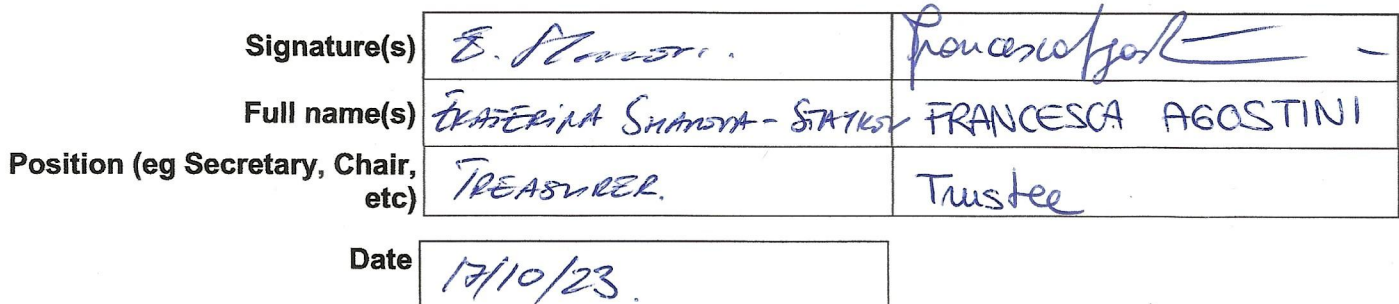 Signature(s) E.
Full name(s) EKATERINA - FRANCESCA AGOSTINI
Position (eg Secretary, Chair,
etc) TREASURER. Trustee
Date 17/10/23.